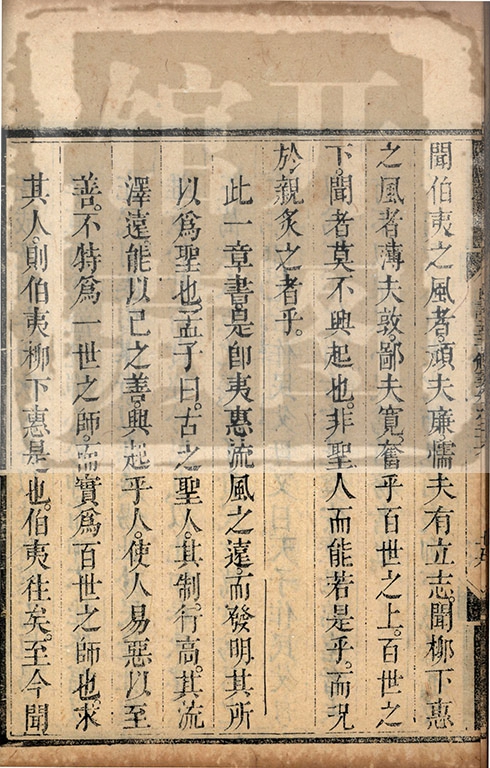 聞伯夷之風者。頑夫廉。懦夫有立志。聞柳下惠
之風者。薄夫敦。鄙夫寬。奮乎百世之上。百世之
下。聞者莫不興起也。非聖人而能若是乎。而況
於親炙之者乎。
此一章書。是卽夷惠流風之遠。而發明其所
以爲聖也。孟子曰。古之聖人。其制行高。其流
澤遠。能以己之善。興起乎人。使人易惡以至
善。不特爲一世之師。而實爲百世之師也。求
其人。則伯夷柳下惠是也。伯夷往矣。至今聞